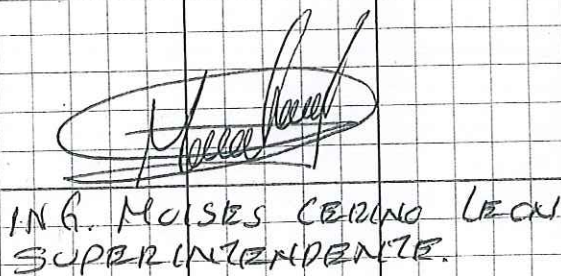 ING. MOISES CERINO LEON
SUPERINTENDENTE.